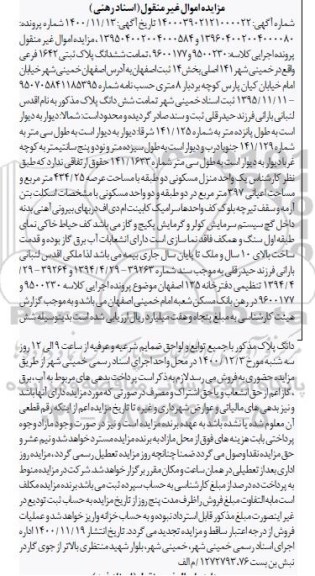 مزایده اموال غیر منقول (اسناد رهنی)
شماره آگهی: ۱۴۰۰۰۳۹۰۲۱۲۱۰۰۰۰۲۲ تاریخ آگهی: ۱۴۰۰/۱۱/۱۳ شماره پرونده:
۱۳۹۶۰۴۰۰۲۰۰۴۰۰۰۰۸۰ ، ۱۳۹۵۰۴۰۰۲۰۰۴۰۰۰۵۸۴ ، مزایده اموال غیر منقول
پرونده اجرایی کلاسه: ۹۵۰۰۲۳۰ و ۹۶۰۰۱۷۷، تمامت ششدانگ پلاک ثبتی ۱۶۴۲ فرعی
واقع در خمینی شهر ۱۴۱ اصلی بخش ۱۴ ثبت اصفهان به آدرس اصفهان خمینی شهر خیابان
امام خیابان کیان پارس کوچه بردبار ۸ متری حسب نامه شماره ۹۵۰۷۰۵۸۴۱۱۸۵۳۹۵
- ۱۳۹۵/۱۱/۱۱ ثبت اسناد خمینی شهر تمامت شش دانگ پلاک مذکور به نام اقدس
لثبانی بارانی فرزند حیدرقلی ثبت و سند صادر گردیده و محدود است: شمالا: دیوار به دیوار
است به طول پانزده متر به شماره ۱۴۱/۱۲۵ شرقا: دیوار به دیوار است به طول سی متر به
شماره ۱۴۱/۱۲۹ جنوبا: درب و دیوار است به طول سیزده متر و نود و پنج سانتیمتر به کوچه
غربا: دیوار به دیوار است به طول سی متر شماره ۱۴۱/۱۶۳۳ حقوق ارتفاقی ندارد که طبق
نظر کارشناس یک واحد منزل مسکونی دو طبقه با مساحت عرصه ۴۳۴/۲۵ متر مربع و
مساحت اعیانی ۳۹۷ متر مربع در دو طبقه و دو واحد مسکونی با مشخصات اسکلت بتن
آرمه و سقف تیرچه بلوک کف واحدها سرامیک کابینت ام دی اف درب‌های بیرونی آهنی بدنه
داخل گچ سیستم سرمایش کولر و گرمایش پکیج و گاز می باشد کف حیاط خاکی نمای
طبقه اول سنگ و همکف فاقد نما سازی است دارای انشعابات آب برق گاز بوده و قدمت
ساخت بالای ۱۰ سال و ملک تا پایان سال جاری بیمه می باشد لذا ملکی اقدس لثبانی
بارانی فرزند حیدرقلی به موجب سند شماره ۳۹۲۶۳ - ۱۳۹۴/۴/۲۹ و ۳۹۲۶۴ - ۲۹/
۱۳۹۴/۴ تنظیمی دفترخانه ۱۳۵ اصفهان موضوع پرونده اجرایی کلاسه ۹۵۰۰۲۳۰ و
۹۶۰۰۱۷۷ در رهن بانک مسکن شعبه امام خمینی اصفهان می باشد و به موجب گزارش
هیئت کارشناسی به مبلغ پنجاه و هفت میلیارد ریال ارزیابی شده است بدینوسیله شش
دانگ پلاک مذکور با جمیع توابع و لواحق ضمایم شرعیه و عرفیه از ساعت ۹ الی ۱۲ روز
سه شنبه مورخ ۱۴۰۰/۱۲/۳ در محل واحد اجرای اسناد رسمی خمینی شهر از طریق
مزایده حضوری به فروش می رسد لازم به ذکر است پرداخت بدهی های مربوط به آب، برق
، گاز اعم از حق انشعاب و یا حق اشتراک و مصرف در صورتی که مورد مزایده دارای آنها باشد
و نیز بدهی های مالیاتی و عوارض شهرداری و غیره تا تاریخ مزایده اعم از اینکه رقم قطعی
آن معلوم شده یا نشده باشد به عهده برنده مزایده است و نیز در صورت وجود مازاد وجوه
پرداختی بابت هزینه های فوق از محل مازاد به برنده مزایده مسترد خواهد شد و نیم عشر و
حق مزایده نقدا وصول می گردد ضمنا چنانچه روز مزایده تعطیل رسمی گردد، مزایده روز
اداری بعد از تعطیلی در همان ساعت و مکان مقرر برگزار خواهد شد. شرکت در مزایده منوط
به پرداخت ده درصد از مبلغ کارشناسی به حساب سپرده ثبت می باشد برنده مزایده مکلف
است مابه التفاوت مبلغ فروش را ظرف مدت پنج روز از تاریخ مزایده به حساب ثبت تودیع در
غیر اینصورت مبلغ مذکور قابل استرداد نبوده و به حساب خزانه واریز خواهد شد و عملیات
فروش از درجه اعتبار ساقط و مزایده تجدید می گردد. تاریخ انتشار ۱۴۰۰/۱۱/۱۹ اداره
اجرای اسناد رسمی خمینی شهر، خمینی شهر، بلوار شهید منتظری بالاتر از جوی گاز در
نبش بن بست ۷۶. ۱۲۷۲۷۹۳ / م الف